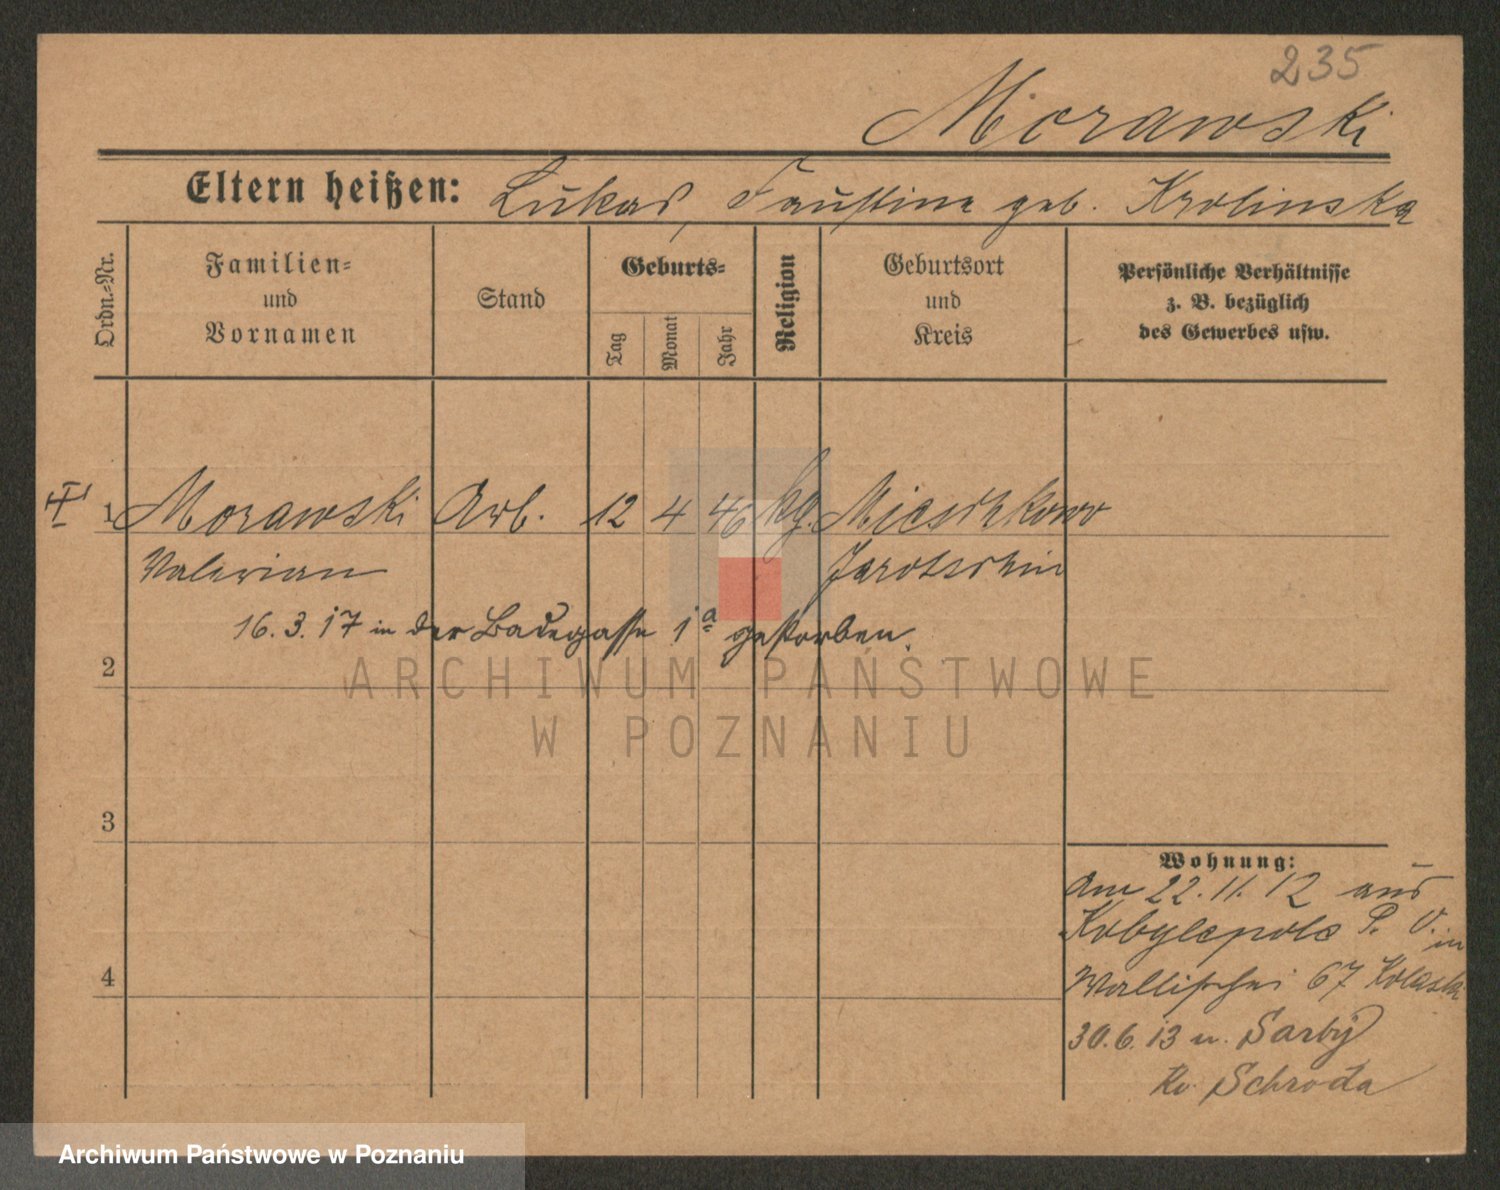 235
Morawski
Eltern heißen: Lukas, Faustine geb. Krolinska
Ordn.-Nr.
Familien-
und
Vornamen
Stand
Geburts-
Tag
Monat
Jahr
Religion
Geburtsort
und
Kreis
Persönliche Verhältnisse
z. B. bezüglich
des Gewerbes usw.
1 Morawski Arb. 12 4 46 kg. Mieschkowo
Valerian Jarotschin
16. 3. 17 in der Badegasse 1a gestorben.
2
ARCHIWUM PAŃSTWOWE
W POZNANIU
3
Wohnung:
Am 22. 11. 12 aus
Kobylepole P. O. in
4
Wallischei 67 Kolaska
30. 6. 13 n. Sarby
Kr. Schroda
Archiwum Państwowe w Poznaniu